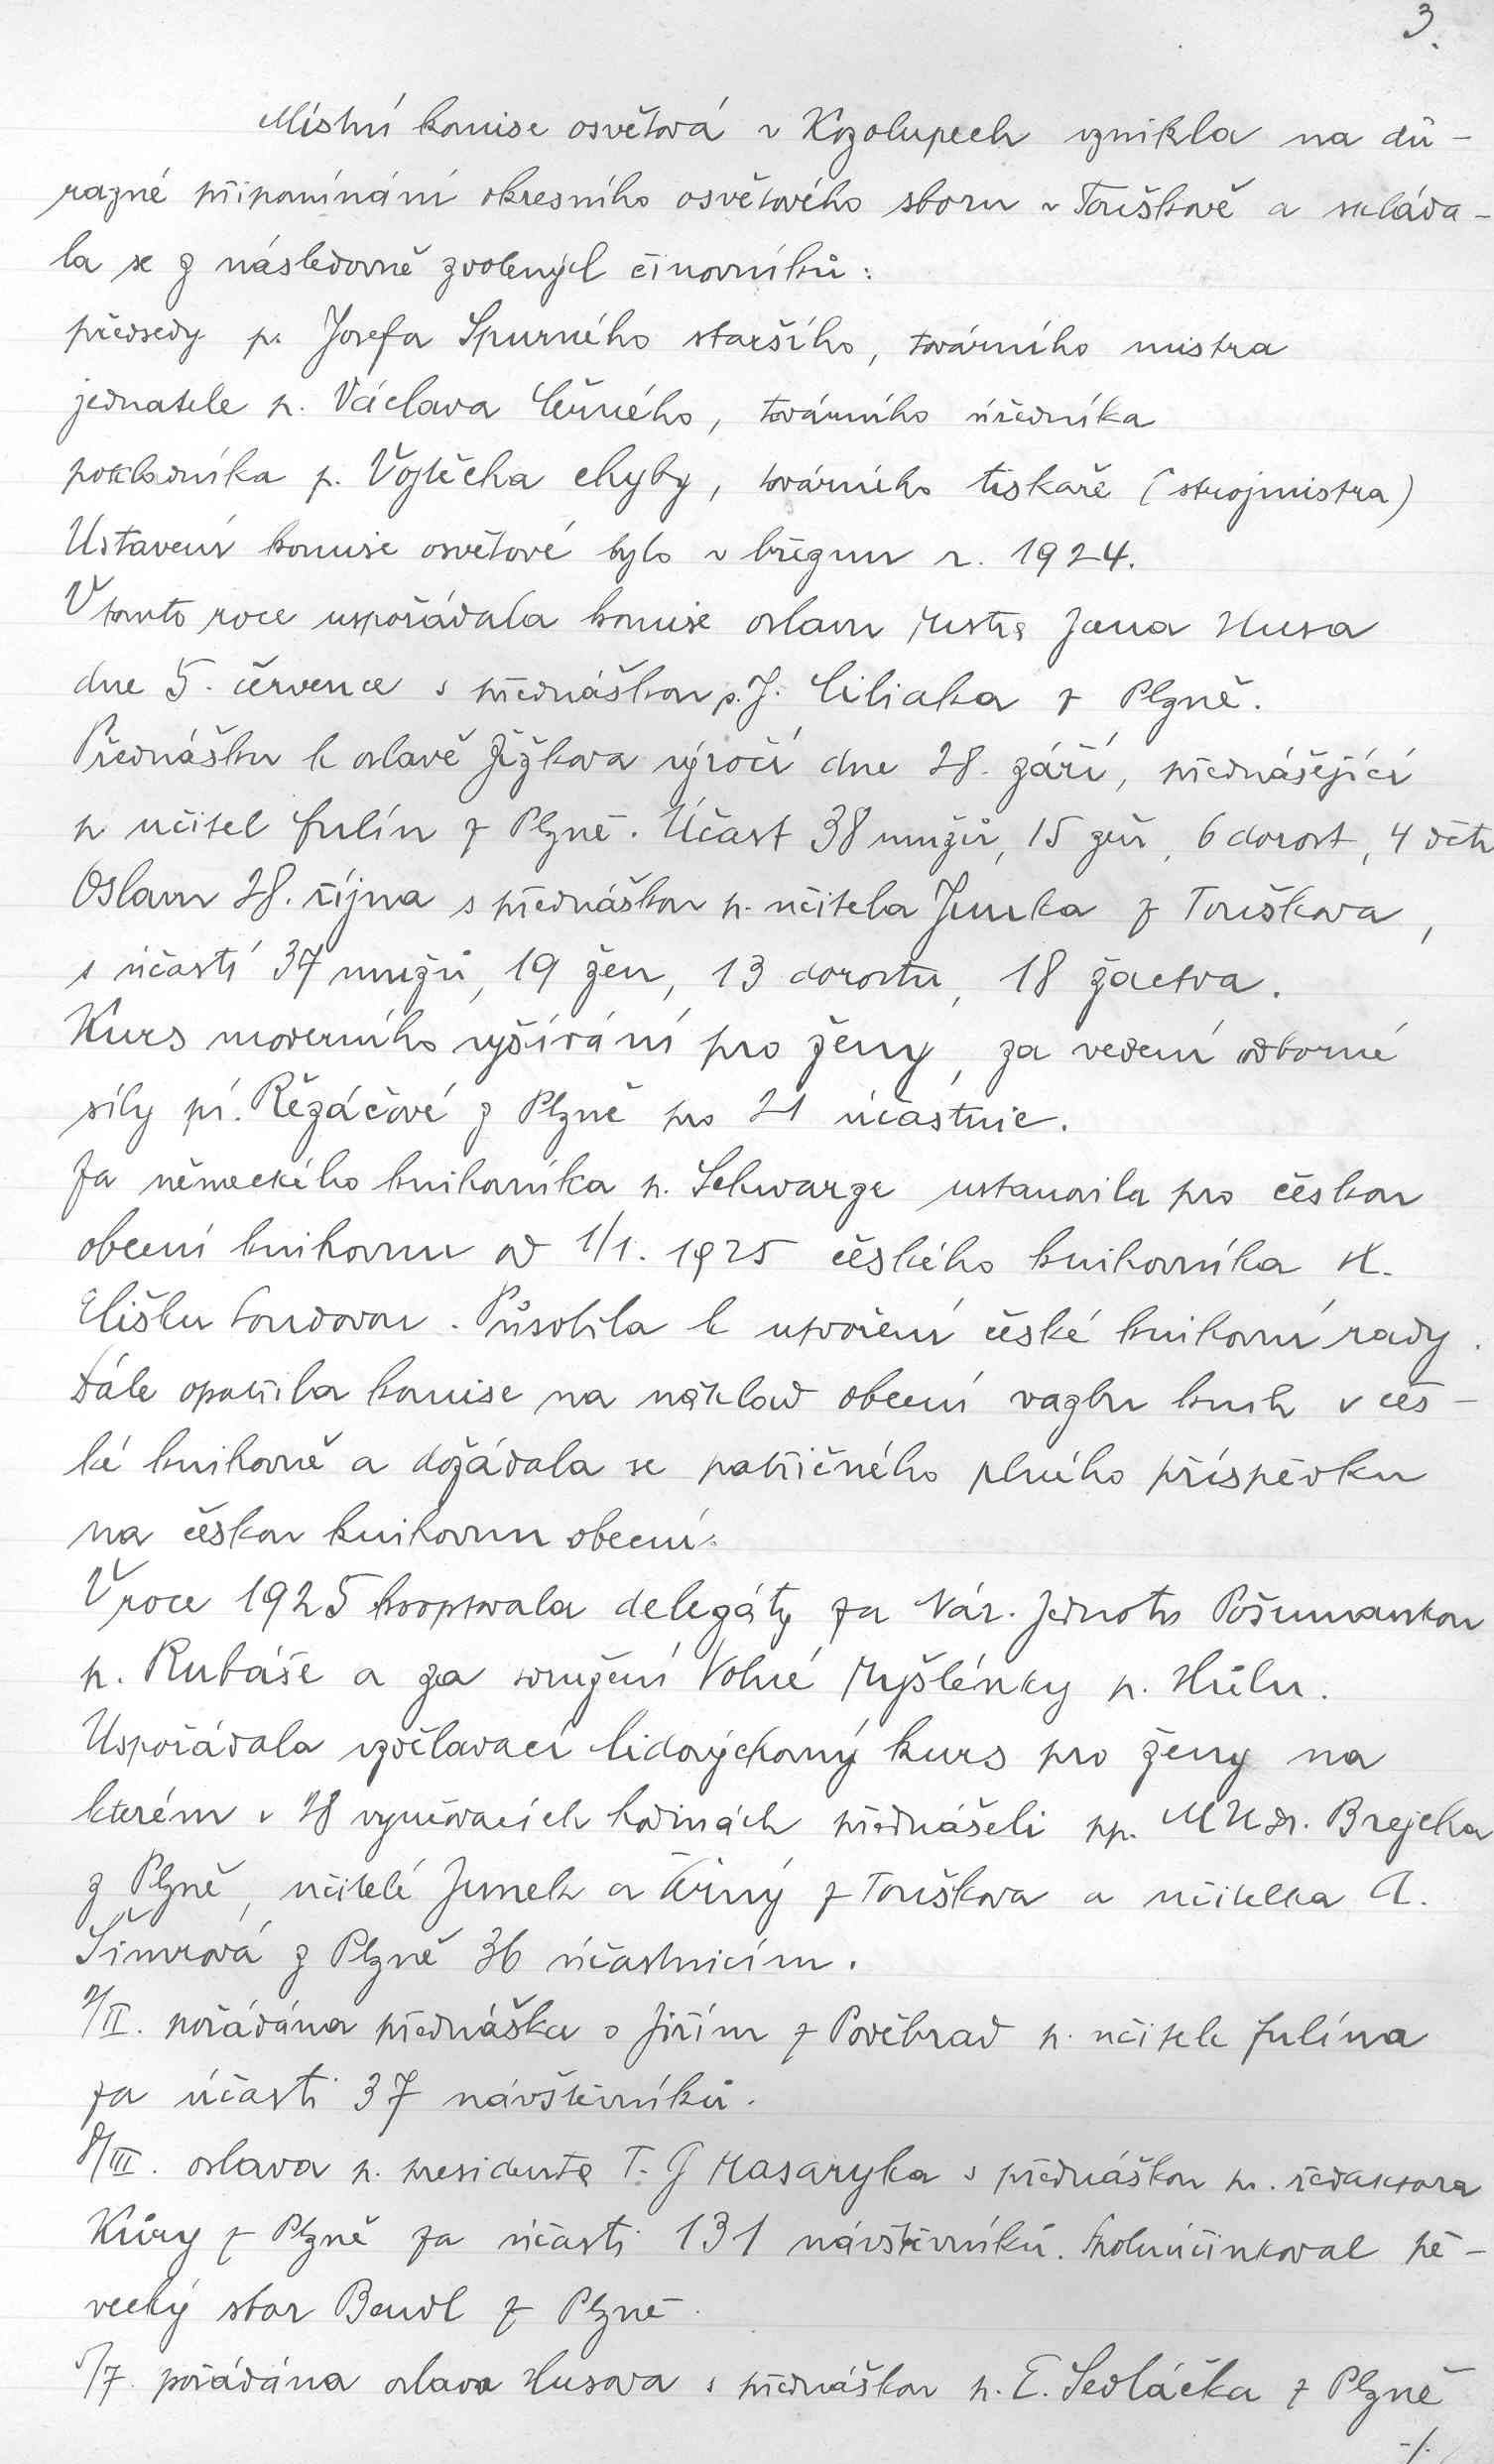 3.
Místní komise osvětová v Kozolupech vznikla na dů-
razné připomínání okresního osvětového sboru v Touškově a skláda-
la se z následovně zvolených činovníků:
předsedy p. Josefa Spurného staršího, továrního mistra
jednatele p. Václava Černého, továrního úředníka
pokladníka p. Vojtěcha Chyby, továrního tiskaře (strojmistra)
Ustavení komise osvětové bylo v březnu r. 1924.
V tomto roce uspořádala komise oslavu Mistra Jana Husa
dne 5. července s přednáškou p. J. Ciliaka z Plzně.
Přednášku k oslavě Žižkova výročí dne 28. září, přednášející
p učitel Fulín z Plzně. Účast 38 mužů, 15 žen, 6 dorost, 4 děti
Oslavu 28. října s přednáškou p. učitele Junka z Touškova,
s účastí 37 mužů, 19 žen, 13 dorostu, 18 žactva.
Kurs moderního vyšívání pro ženy, za vedení odborné
síly pí. Řezáčové z Plzně pro 21 účastnic.
Za německého knihovníka p. Schwarze ustanovila pro českou
obecní knihovnu od 1/1. 1925 českého knihovníka sl.
Elišku Loudovou. Působila k utvoření české knihovní rady.
Dále opatřila komise na náklad obecní vazbu knih v čes-
ké knihovně a dožádala se patřičného plného příspěvku
na českou knihovnu obecní.
V roce 1925 kooptovala delegáty za Nár. Jednotu Pošumavskou
p. Rubáše a za sdružení Volné Myšlénky p. Hůlu.
Uspořádala vzdělavací lidovýchovný kurs pro ženy na
kterém v 28 vyučovacích hodinách přednášeli pp. MUDr. Brejcha
z Plzně, učitelé Junek a Černý z Touškova a učitelka A.
Šimrová z Plzně 36 účastnicím.
2/II. pořádána přednáška o Jiřím z Poděbrad p. učitele Fulína
za účasti 37 návštěvníků.
8/III. oslava p. presidenta T. G Masaryka s přednáškou p. redaktora
Kůry z Plzně za účasti 131 návštěvníků. Spoluúčinkoval pě-
vecký sbor Bendl z Plzně.
5/7. pořádána oslava Husova s přednáškou p. E. Sedláčka z Plzně
-/.